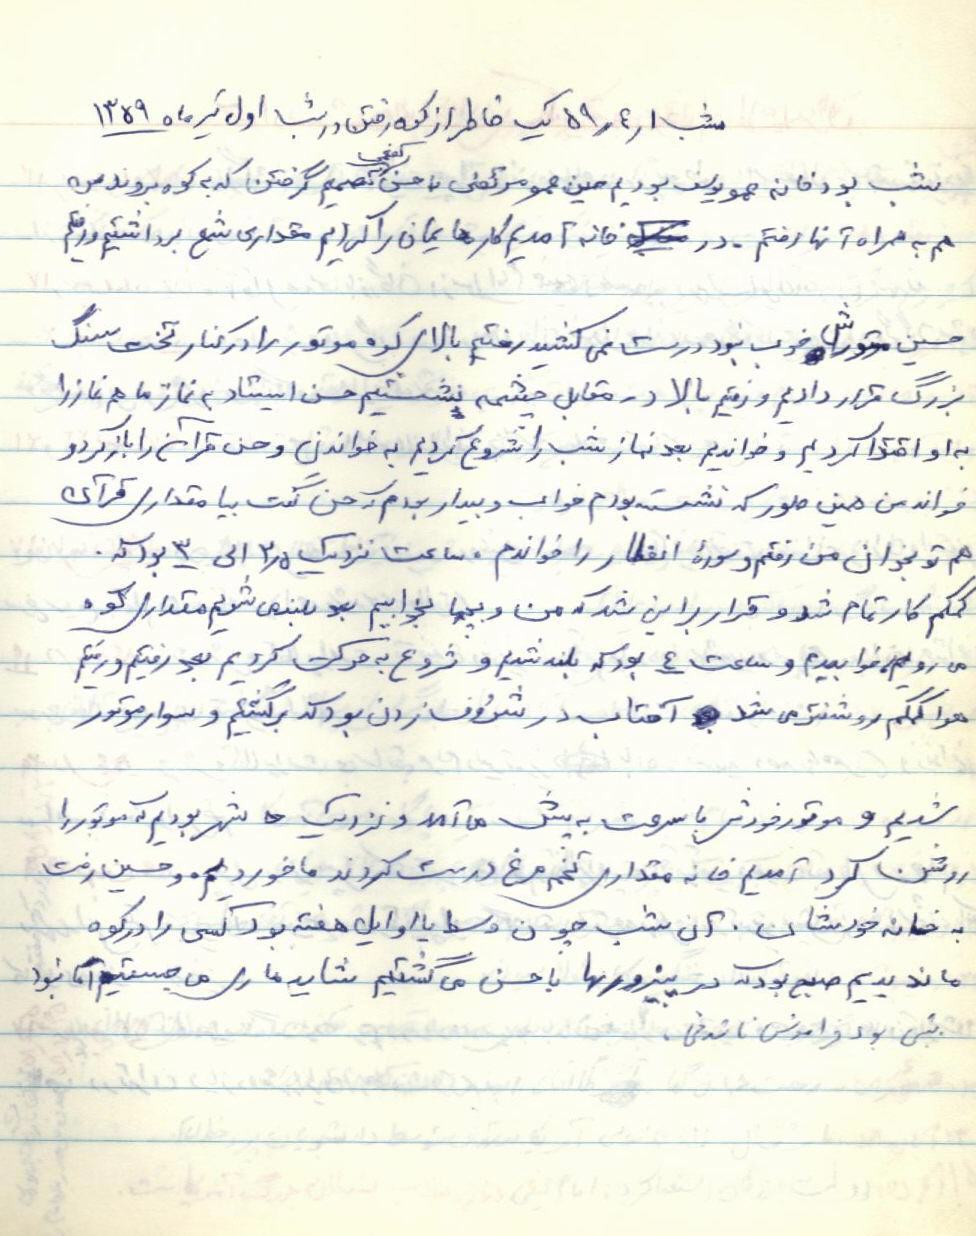 شب ۱ر۴ر۵۹ یک خاطر از کوه رفتن در شب اول تیر ماه ۱۳۵۹
شب بود خانه عمو یوسف بودیم حسین عمو مرتضی با حسن کفعمی تصمیم گرفتن که به کوه بروند من
هم به همراه آنها رفتم . در خانه آمدیم کارهایمان را کردیم مقداری شمع برداشتیم و رفتیم
حسین موتورش خوب نبود درست نمی کشید رفتیم بالای کوه موتور را در کنار تخت سنگ
بزرگ قرار دادیم و رفتیم بالا در مقابل چشمه نشستیم حسن ایستاد به نماز ما هم نماز را
به او اقتدا کردیم و خواندیم بعد نماز شب را شروع کردیم به خواندن و حسن قرآن را باز کرد و
خواند من همین طور که نشسته بودم خواب و بیدار بودم که حسن گفت بیا مقداری قرآن
هم تو بخوان من رفتم و سورهٔ انفطار را خواندم . ساعت نزدیک ۲ر۵ الی ۳ بود که .
کمکم کار تمام شد و قرار براین شد که من و بچها بخوابیم بعد بلند شویم مقداری کوه
می رویم خوابیدم و ساعت ٤ بود که بلند شدیم و شروع به حرکت کردیم بعد رفتیم و رفتیم
هوا کمکم روشنتر می شد آفتاب در شُرُف زدن بود که برگشتیم و سوار موتور
شدیم و موتور خودش با سرعت به پیش می آمد و نزدیک ها شهر بودیم که موتور را
روشن کرد آمدیم خانه مقداری تخم مرغ درست کردند ما خوردیم و حسین رفت
به خانه خودشان . آن شب چون وسط یا اوایل هفته بود کسی را در کوه
ما ندیدیم صبح بود که در با حسن می گشتیم شاید ماری می جستیم اما نبود
شبی بود فراموش ناشدنی .